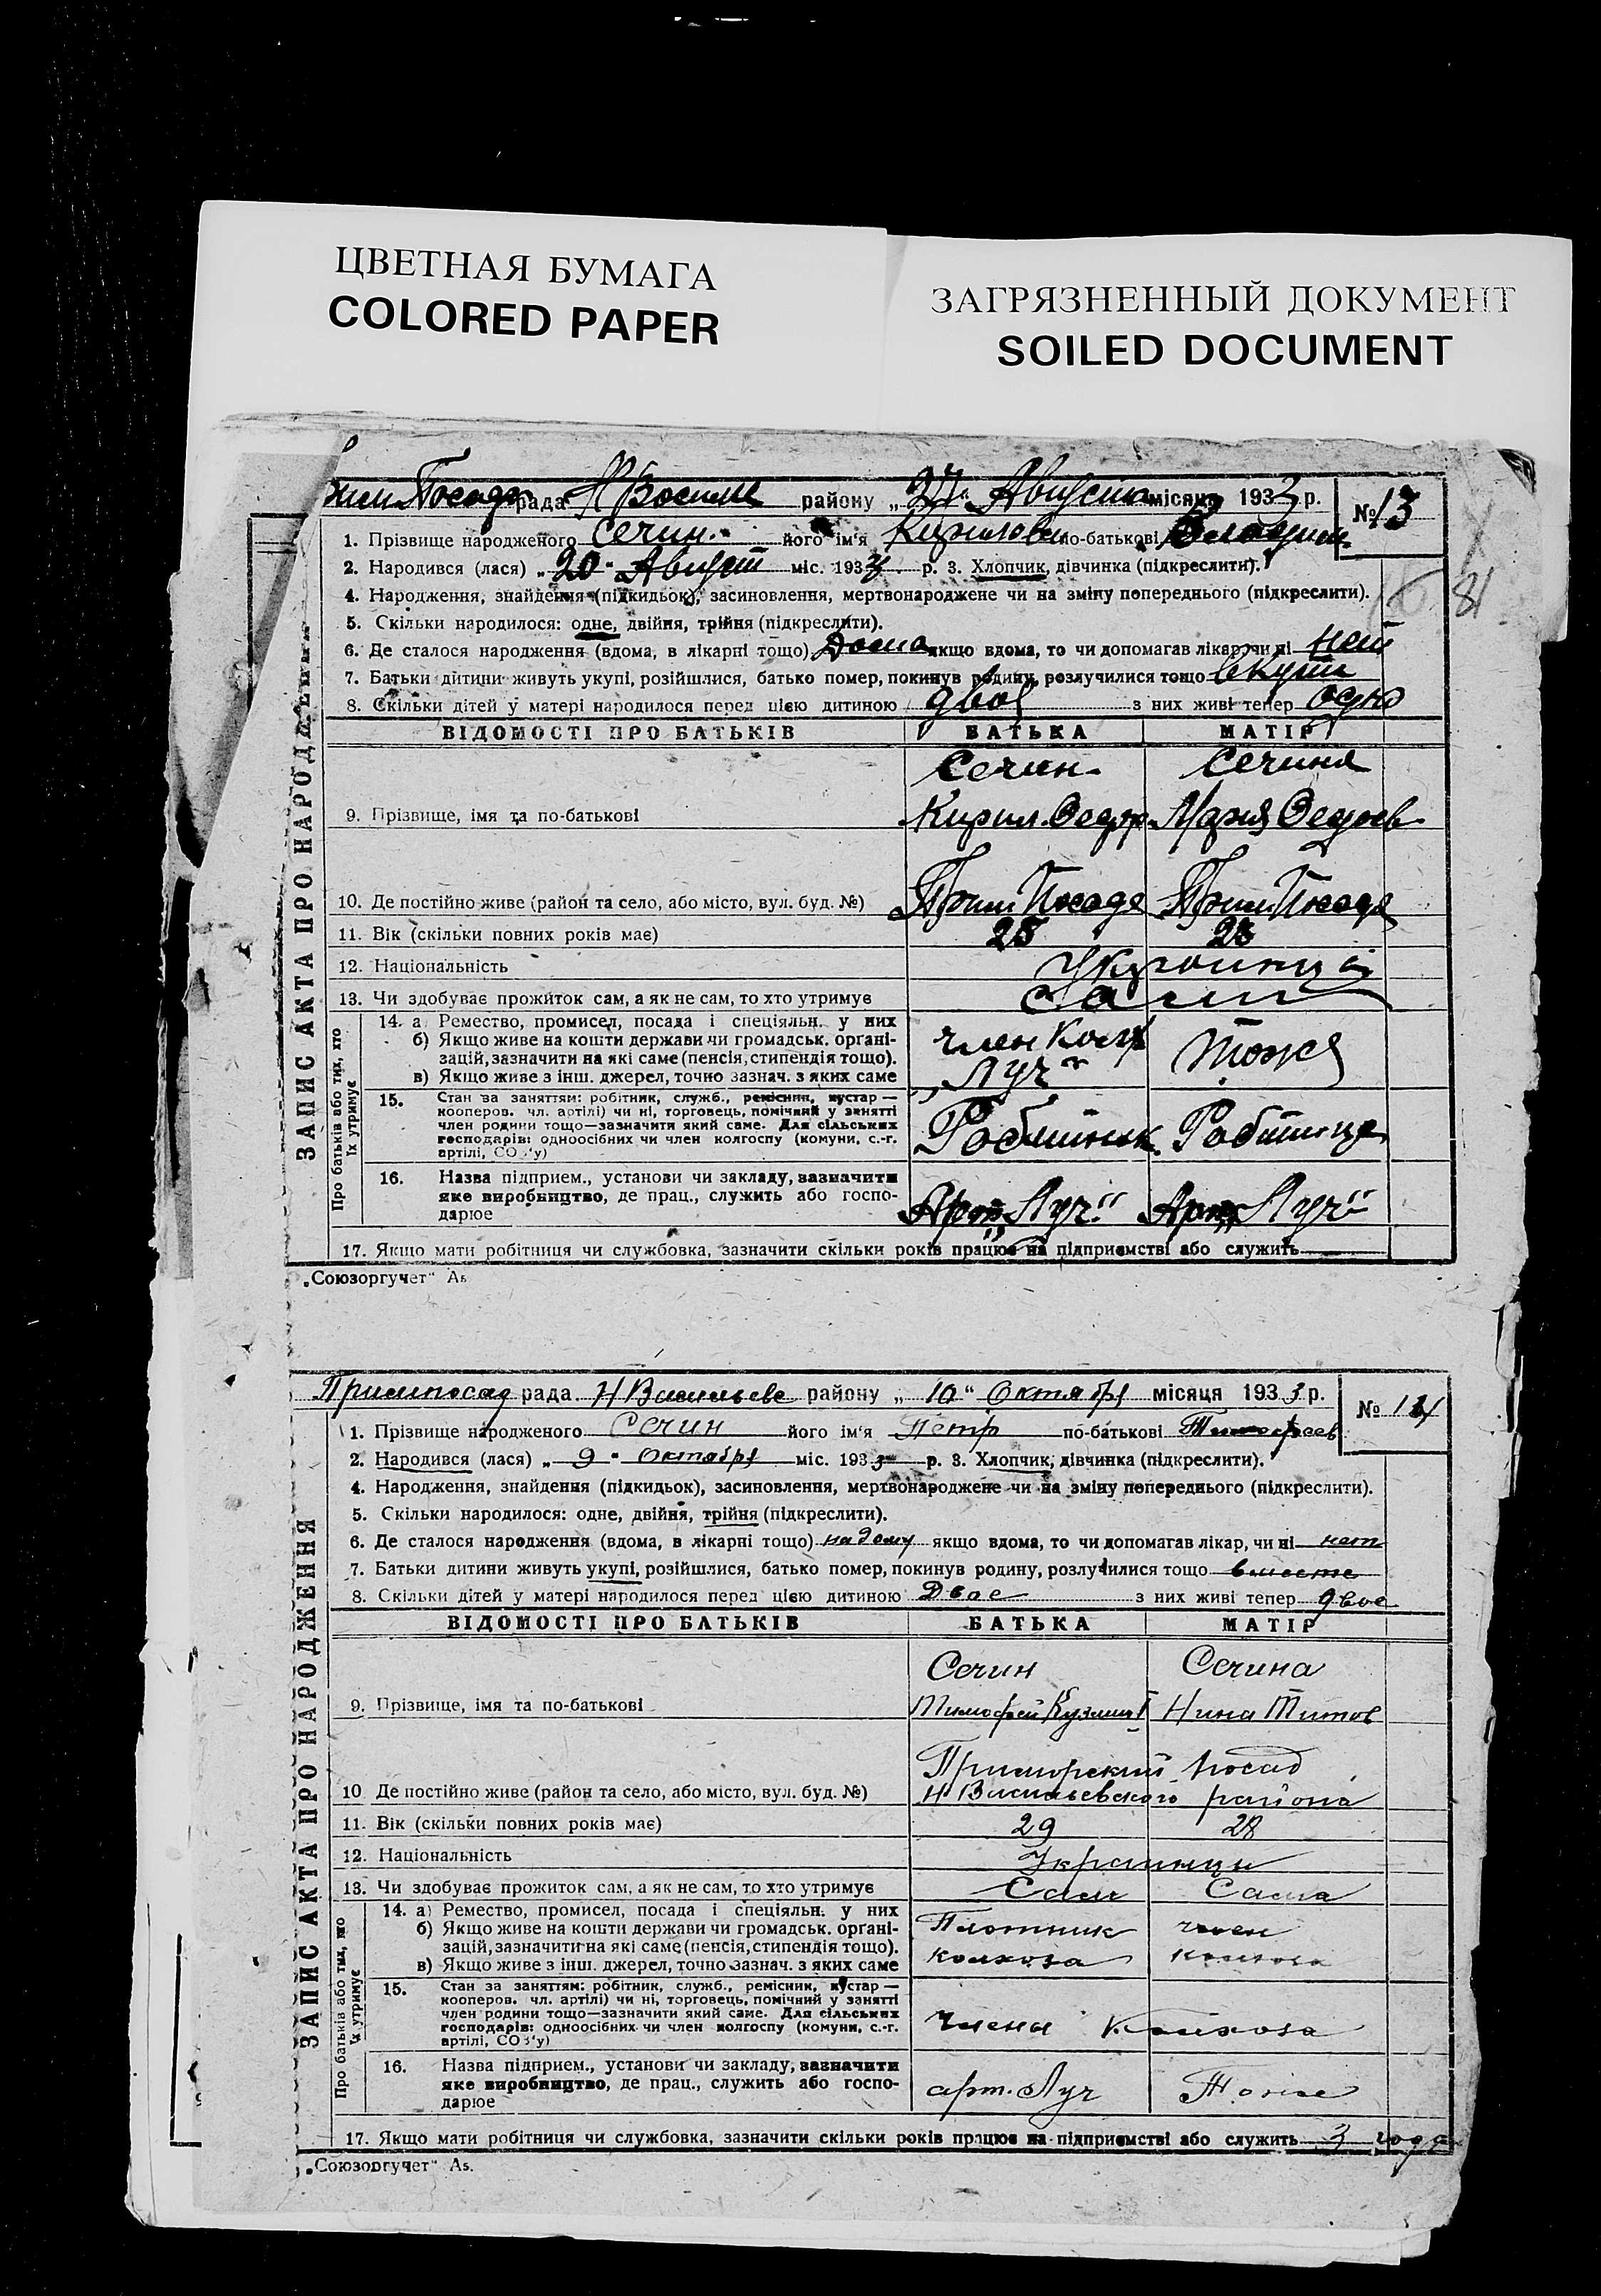 ЦВЕТНАЯ БУМАГА
COLORED PAPER
ЗАГРЯЗНЕННЫЙ ДОКУМЕНТ
SOILED DOCUMENT
Посада рада Н Василье району „27“ Августа місяця 1933 р.
№ 13
1. Прізвище народженого Сечин його ім'я Кирилови по-батькові Владим
2. Народився (лася) „20“ Август міс. 1933 р. 3. Хлопчик, дівчинка (підкреслити).
4. Народження, знайдення (підкидьок), засиновлення, мертвонароджене чи на зміну попереднього (підкреслити).
81
5. Скільки народилося: одне, двійня, трійня (підкреслити).
6. Де сталося народження (вдома, в лікарні тощо) Дома якщо вдома, то чи допомагав лікар, чи ні нет
7. Батьки дитини живуть укупі, розійшлися, батько помер, покинув родину, розлучилися тощо вкупи
8. Скільки дітей у матері народилося перед цією дитиною двое з них живі тепер одно
ВІДОМОСТІ ПРО БАТЬКІВ БАТЬКА МАТІР
Сечин Сечина
9. Прізвище, імя та по-батькові Кирил Федор Мария Федоев
10. Де постійно живе (район та село, або місто, вул. буд. №) Прим Посада Прим Посада
11. Вік (скільки повних років має) 28 28
12. Національність Украинці
13. Чи здобуває прожиток сам, а як не сам, то хто утримує сами
ЗАПИС АКТА ПРО НАРОДЖЕННЯ
Про батьків або тих, хто їх утримує
14. а) Ремество, промисел, посада і спеціяльн. у них
б) Якщо живе на кошти держави чи громадськ. організацій, зазначити на які саме (пенсія, стипендія тощо).
в) Якщо живе з інш. джерел, точно зазнач. з яких саме
член Колх „Луч“ тоже
15. Стан за заняттям: робітник, служб., ремісник, кустар —
кооперов. чл. артілі) чи ні, торговець, помічний у занятті
член родини тощо—зазначити який саме. Для сільських
господарів: одноосібних чи член колгоспу (комуни, с.-г.
артілі, СОЗ'у)
Робітник Робітница
16. Назва підприєм., установи чи закладу, зазначити
яке виробництво, де прац., служить або госпо-
дарює
Арт „Луч“ Арт „Луч“
17. Якщо мати робітниця чи службовка, зазначити скільки років працює на підприємстві або служить
„Союзоргучет“
Примпосад рада Н Васильеве району „10“ Октября місяця 1933 р.
№ 14
1. Прізвище народженого Сечин його ім'я Петр по-батькові Тимофеев
2. Народився (лася) „9“ Октября міс. 1933 р. 3. Хлопчик, дівчинка (підкреслити).
4. Народження, знайдення (підкидьок), засиновлення, мертвонароджене чи на зміну попереднього (підкреслити).
5. Скільки народилося: одне, двійня, трійня (підкреслити).
6. Де сталося народження (вдома, в лікарні тощо) на дому якщо вдома, то чи допомагав лікар, чи ні нет
7. Батьки дитини живуть укупі, розійшлися, батько помер, покинув родину, розлучилися тощо вместе
8. Скільки дітей у матері народилося перед цією дитиною Двое з них живі тепер двое
ВІДОМОСТІ ПРО БАТЬКІВ БАТЬКА МАТІР
Сечин Сечина
9. Прізвище, імя та по-батькові Тимофей Кузмич Нина Титов
Приморский посад
10 Де постійно живе (район та село, або місто, вул. буд. №) Н Васильевского района
11. Вік (скільки повних років має) 29 28
12. Національність Украинцы
13. Чи здобуває прожиток сам, а як не сам, то хто утримує Сам Сама
ЗАПИС АКТА ПРО НАРОДЖЕННЯ
Про батьків або тих, хто їх утримує
14. а) Ремество, промисел, посада і спеціяльн. у них
б) Якщо живе на кошти держави чи громадськ. органі-
зацій, зазначити на які саме (пенсія, стипендія тощо).
в) Якщо живе з інш. джерел, точно зазнач. з яких саме
Плотник член
колхоза колхоза
15. Стан за заняттям: робітник, служб., ремісник, кустар —
кооперов. чл. артілі) чи ні, торговець, помічний у занятті
член родини тощо—зазначити який саме. Для сільських
господарів: одноосібних чи член колгоспу (комуни, с.-г.
артілі, СОЗ'у)
Члены Колхоза
16. Назва підприєм., установи чи закладу, зазначити
яке виробництво, де прац., служить або госпо-
дарює
арт. Луч Тоже
17. Якщо мати робітниця чи службовка, зазначити скільки років працює на підприємстві або служить 3 года
„Союзоргучет“